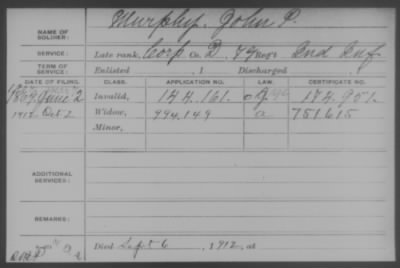 NAME OF SOLDIER: Murphy, John P.
SERVICE: Late rank, Corp. Co. D, 79 Reg't Ind Inf.
TERM OF SERVICE: Enlisted , 1 Discharged , 1
DATE OF FILING. CLASS. APPLICATION NO. LAW. CERTIFICATE NO.
1869 June 2 Invalid, 144.161. 174.951.
1912 Oct 2 Widow, 994.149 a 751615
Minor,
ADDITIONAL SERVICES:
REMARKS:
Died Sept 6, 1912, at